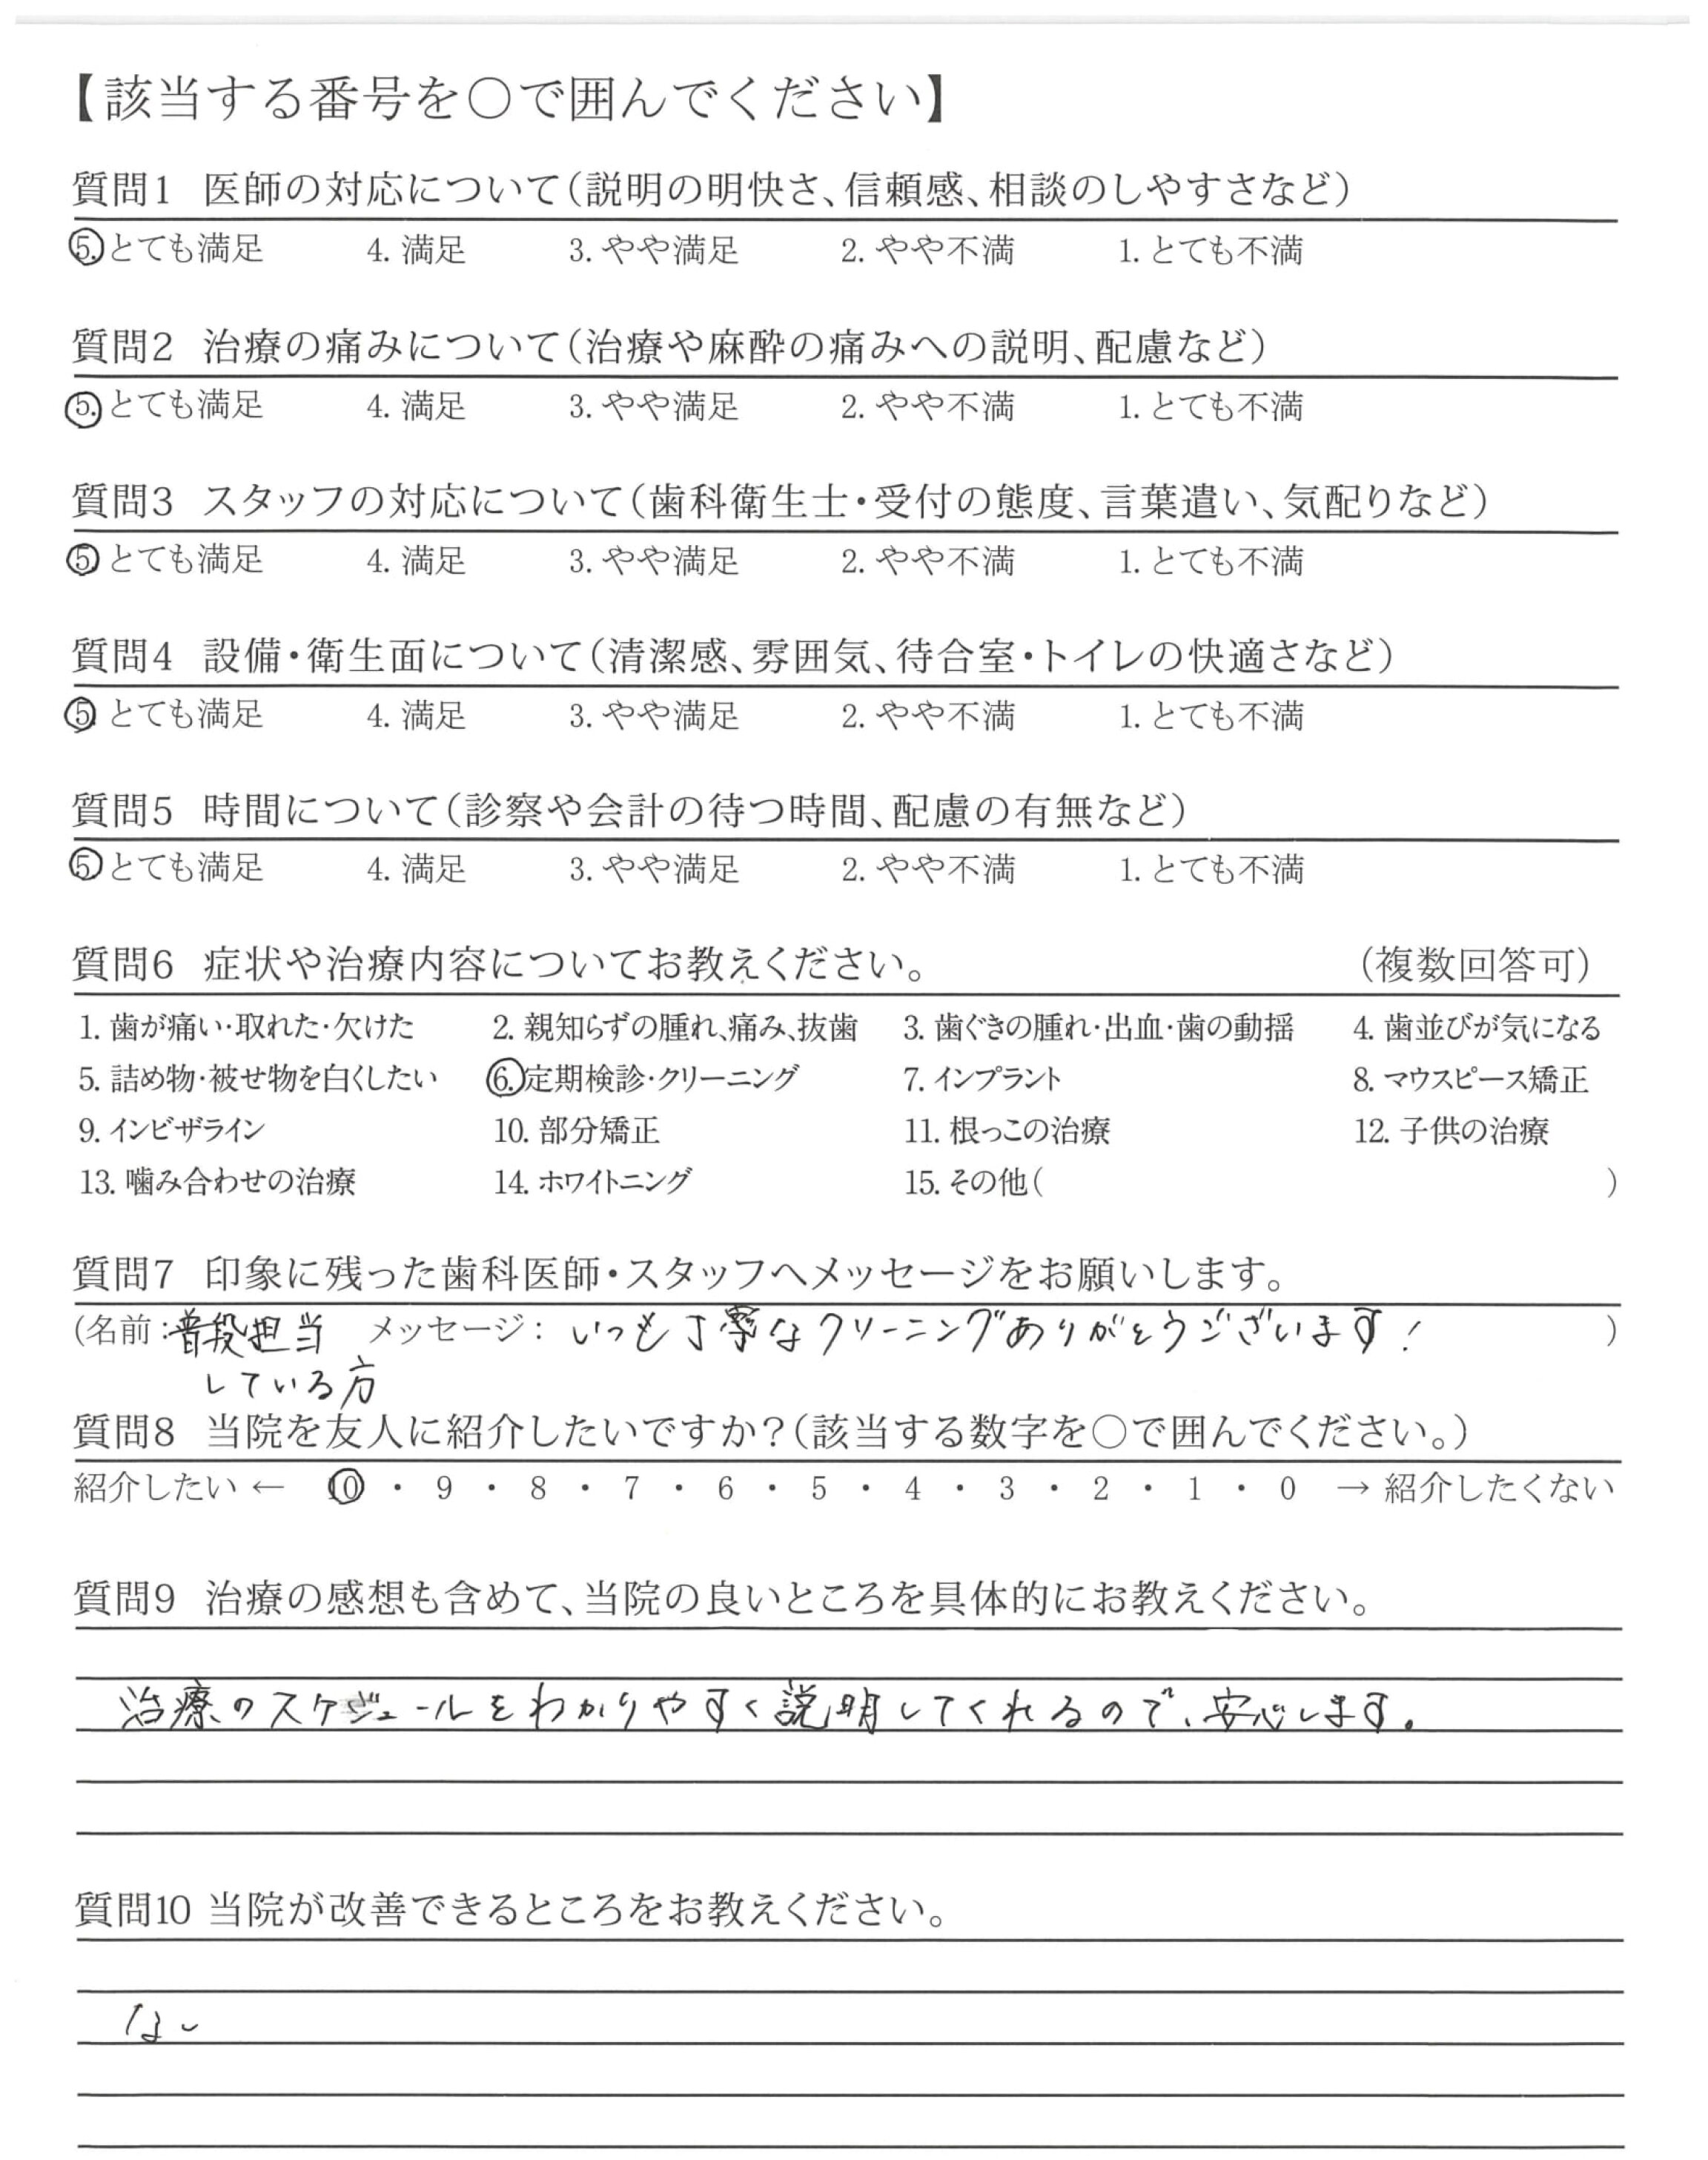 【該当する番号を○で囲んでください】
質問1 医師の対応について(説明の明快さ、信頼感、相談のしやすさなど)
5. とても満足 4. 満足 3. やや満足 2. やや不満 1. とても不満
質問2 治療の痛みについて(治療や麻酔の痛みへの説明、配慮など)
5. とても満足 4. 満足 3. やや満足 2. やや不満 1. とても不満
質問3 スタッフの対応について(歯科衛生士・受付の態度、言葉遣い、気配りなど)
5 とても満足 4. 満足 3. やや満足 2. やや不満 1. とても不満
質問4 設備・衛生面について(清潔感、雰囲気、待合室・トイレの快適さなど)
5 とても満足 4. 満足 3. やや満足 2. やや不満 1. とても不満
質問5 時間について(診察や会計の待つ時間、配慮の有無など)
5. とても満足 4. 満足 3. やや満足 2. やや不満 1. とても不満
質問6 症状や治療内容についてお教えください。 (複数回答可)
1. 歯が痛い・取れた・欠けた 2. 親知らずの腫れ、痛み、抜歯 3. 歯ぐきの腫れ・出血・歯の動揺 4. 歯並びが気になる
5. 詰め物・被せ物を白くしたい 6. 定期検診・クリーニング 7. インプラント 8. マウスピース矯正
9. インビザライン 10. 部分矯正 11. 根っこの治療 12. 子供の治療
13. 噛み合わせの治療 14. ホワイトニング 15. その他( )
質問7 印象に残った歯科医師・スタッフへメッセージをお願いします。
(名前:普段担当 メッセージ: いつも丁寧なクリーニングありがとうございます! )
している方
質問8 当院を友人に紹介したいですか?(該当する数字を○で囲んでください。)
紹介したい ← 10 ・ 9 ・ 8 ・ 7 ・ 6 ・ 5 ・ 4 ・ 3 ・ 2 ・ 1 ・ 0 → 紹介したくない
質問9 治療の感想も含めて、当院の良いところを具体的にお教えください。
治療のスケジュールをわかりやすく説明してくれるので、安心します。
質問10 当院が改善できるところをお教えください。
なし